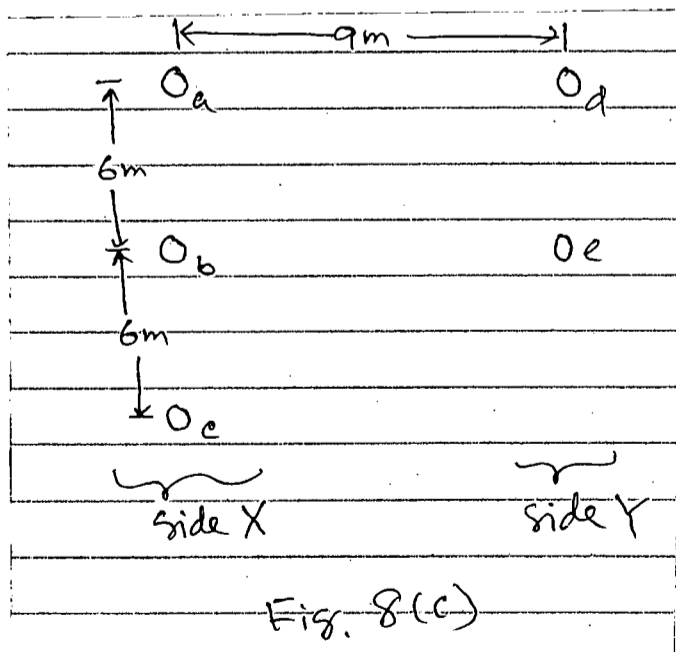 9m
Oa Od
6m
Ob Oe
6m
Oc
side X side Y
Fig. 8(c)